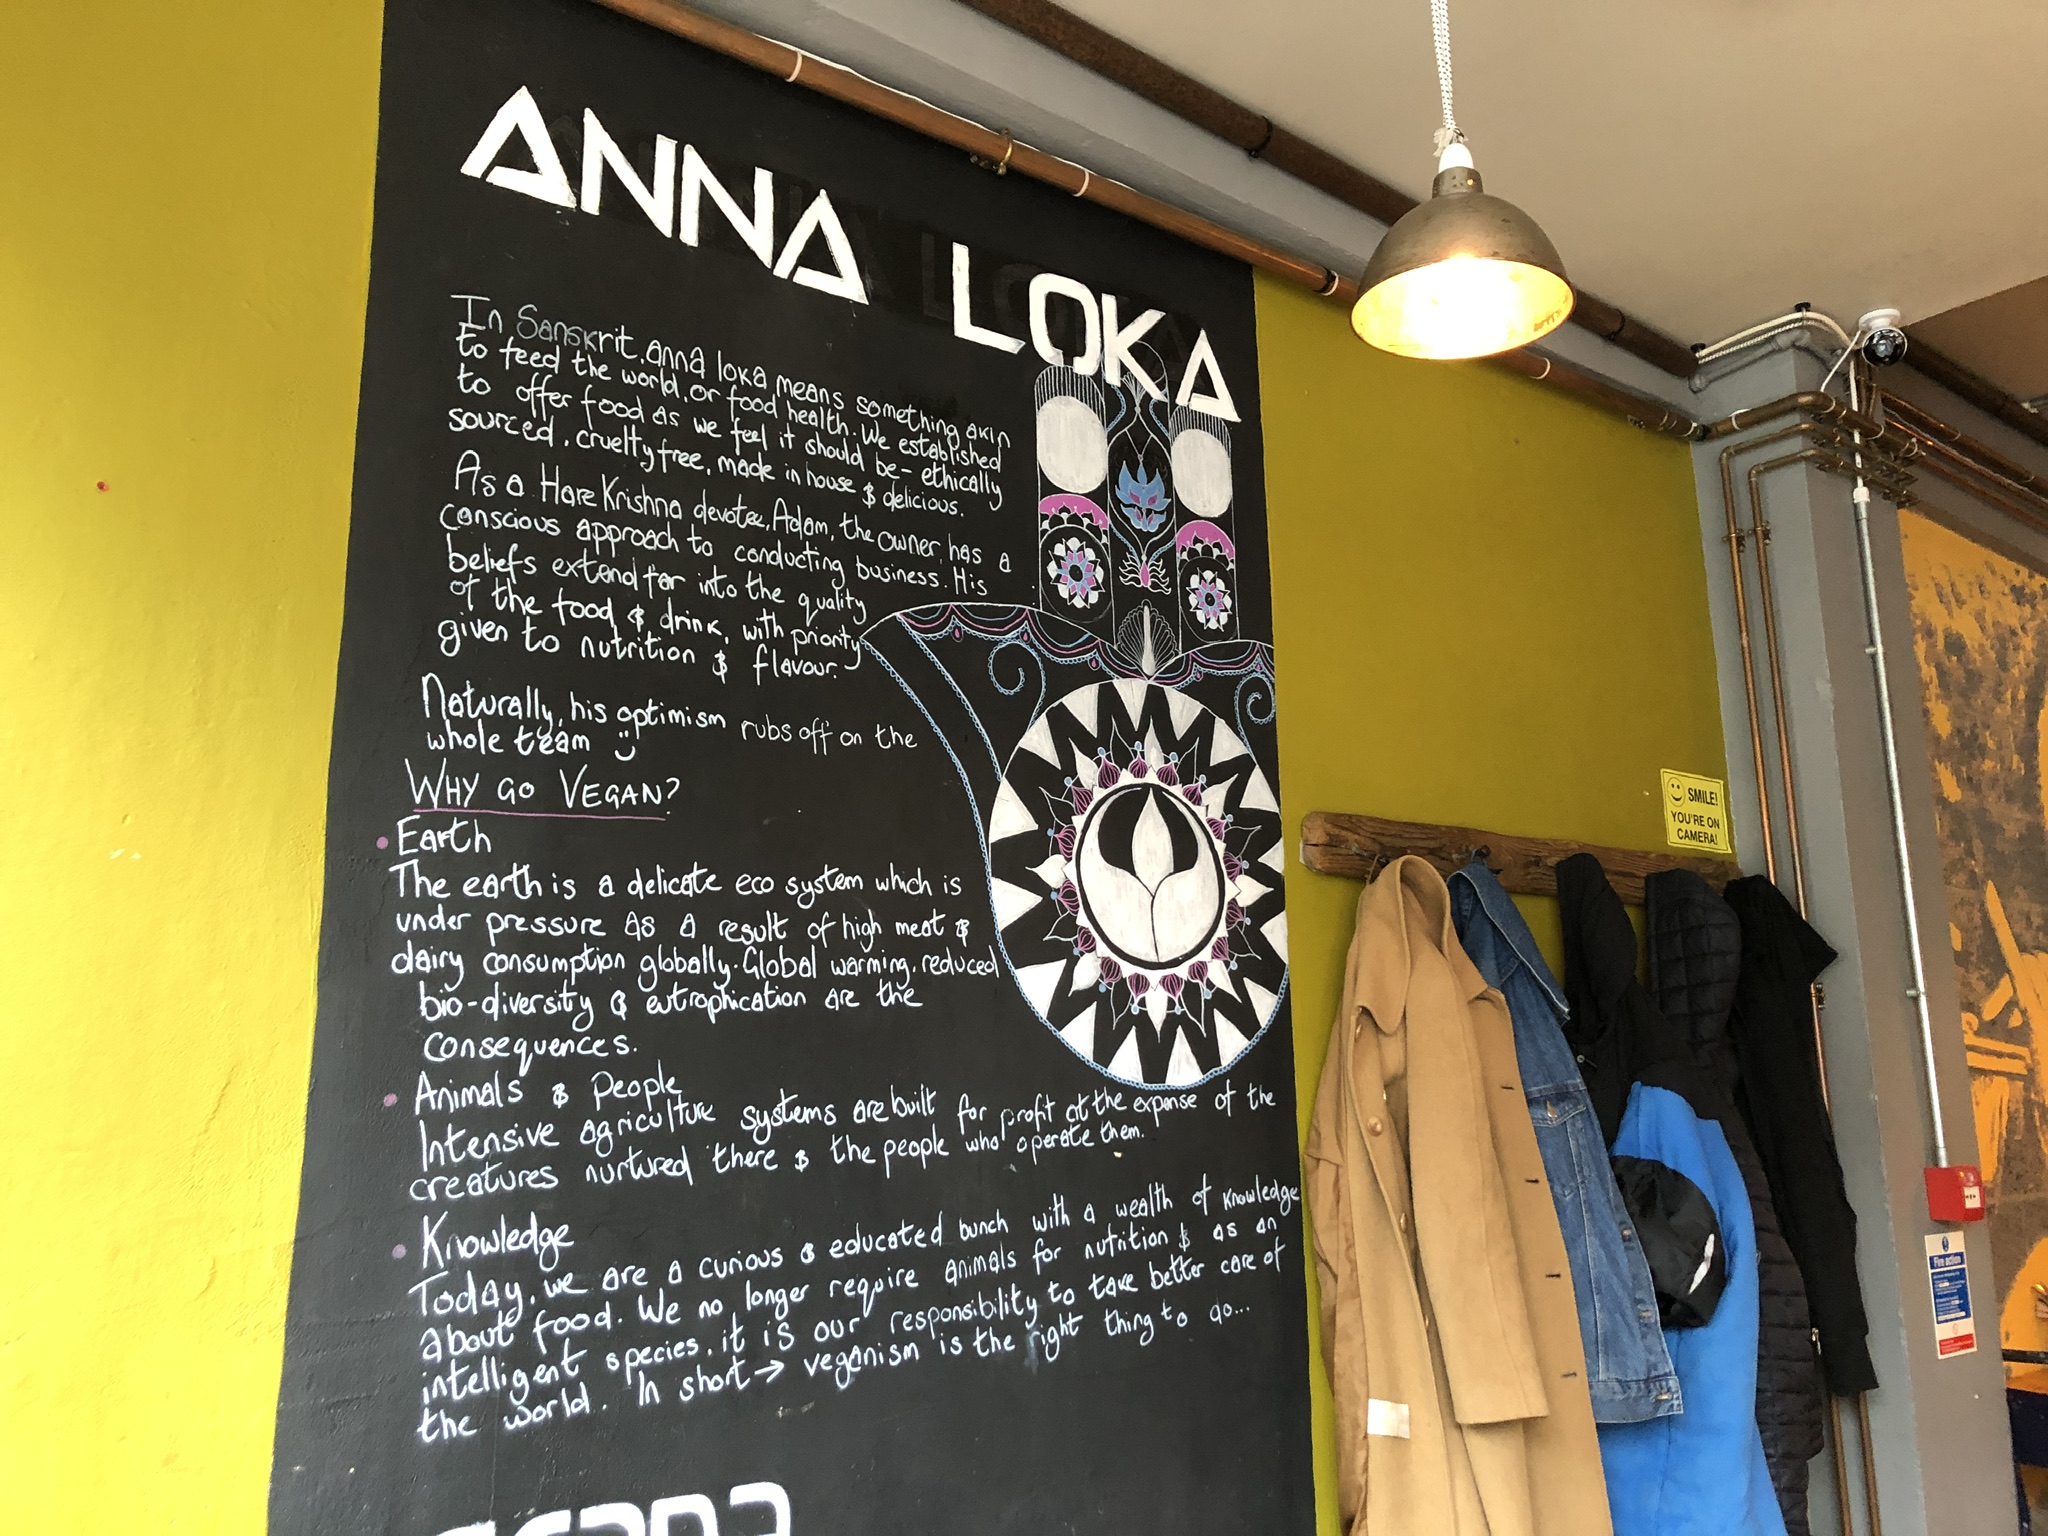 ANNA LOKA
In Sanskrit, anna loka means something akin
to feed the world, or food health. We established
to offer food as we feel it should be - ethically
sourced, cruelty free, made in house & delicious.
As a Hare Krishna devotee, Adam, the owner, has a
conscious approach to conducting business. His
beliefs extend far into the quality
of the food & drink, with priority
given to nutrition & flavour.
Naturally, his optimism rubs off on the
whole team
WHY GO VEGAN?
• Earth
The earth is a delicate eco system which is
under pressure as a result of high meat &
dairy consumption globally. Global warming, reduced
bio-diversity & eutrophication are the
consequences.
• Animals & People
Intensive agriculture systems are built for profit at the expense of the
creatures nurtured there & the people who operate them.
• Knowledge
Today, we are a curious & educated bunch with a wealth of knowledge
about food. We no longer require animals for nutrition & as an
intelligent species, it is our responsibility to take better care of
the world. In short → veganism is the right thing to do...
SMILE!
YOU'RE ON
CAMERA!
Fire action